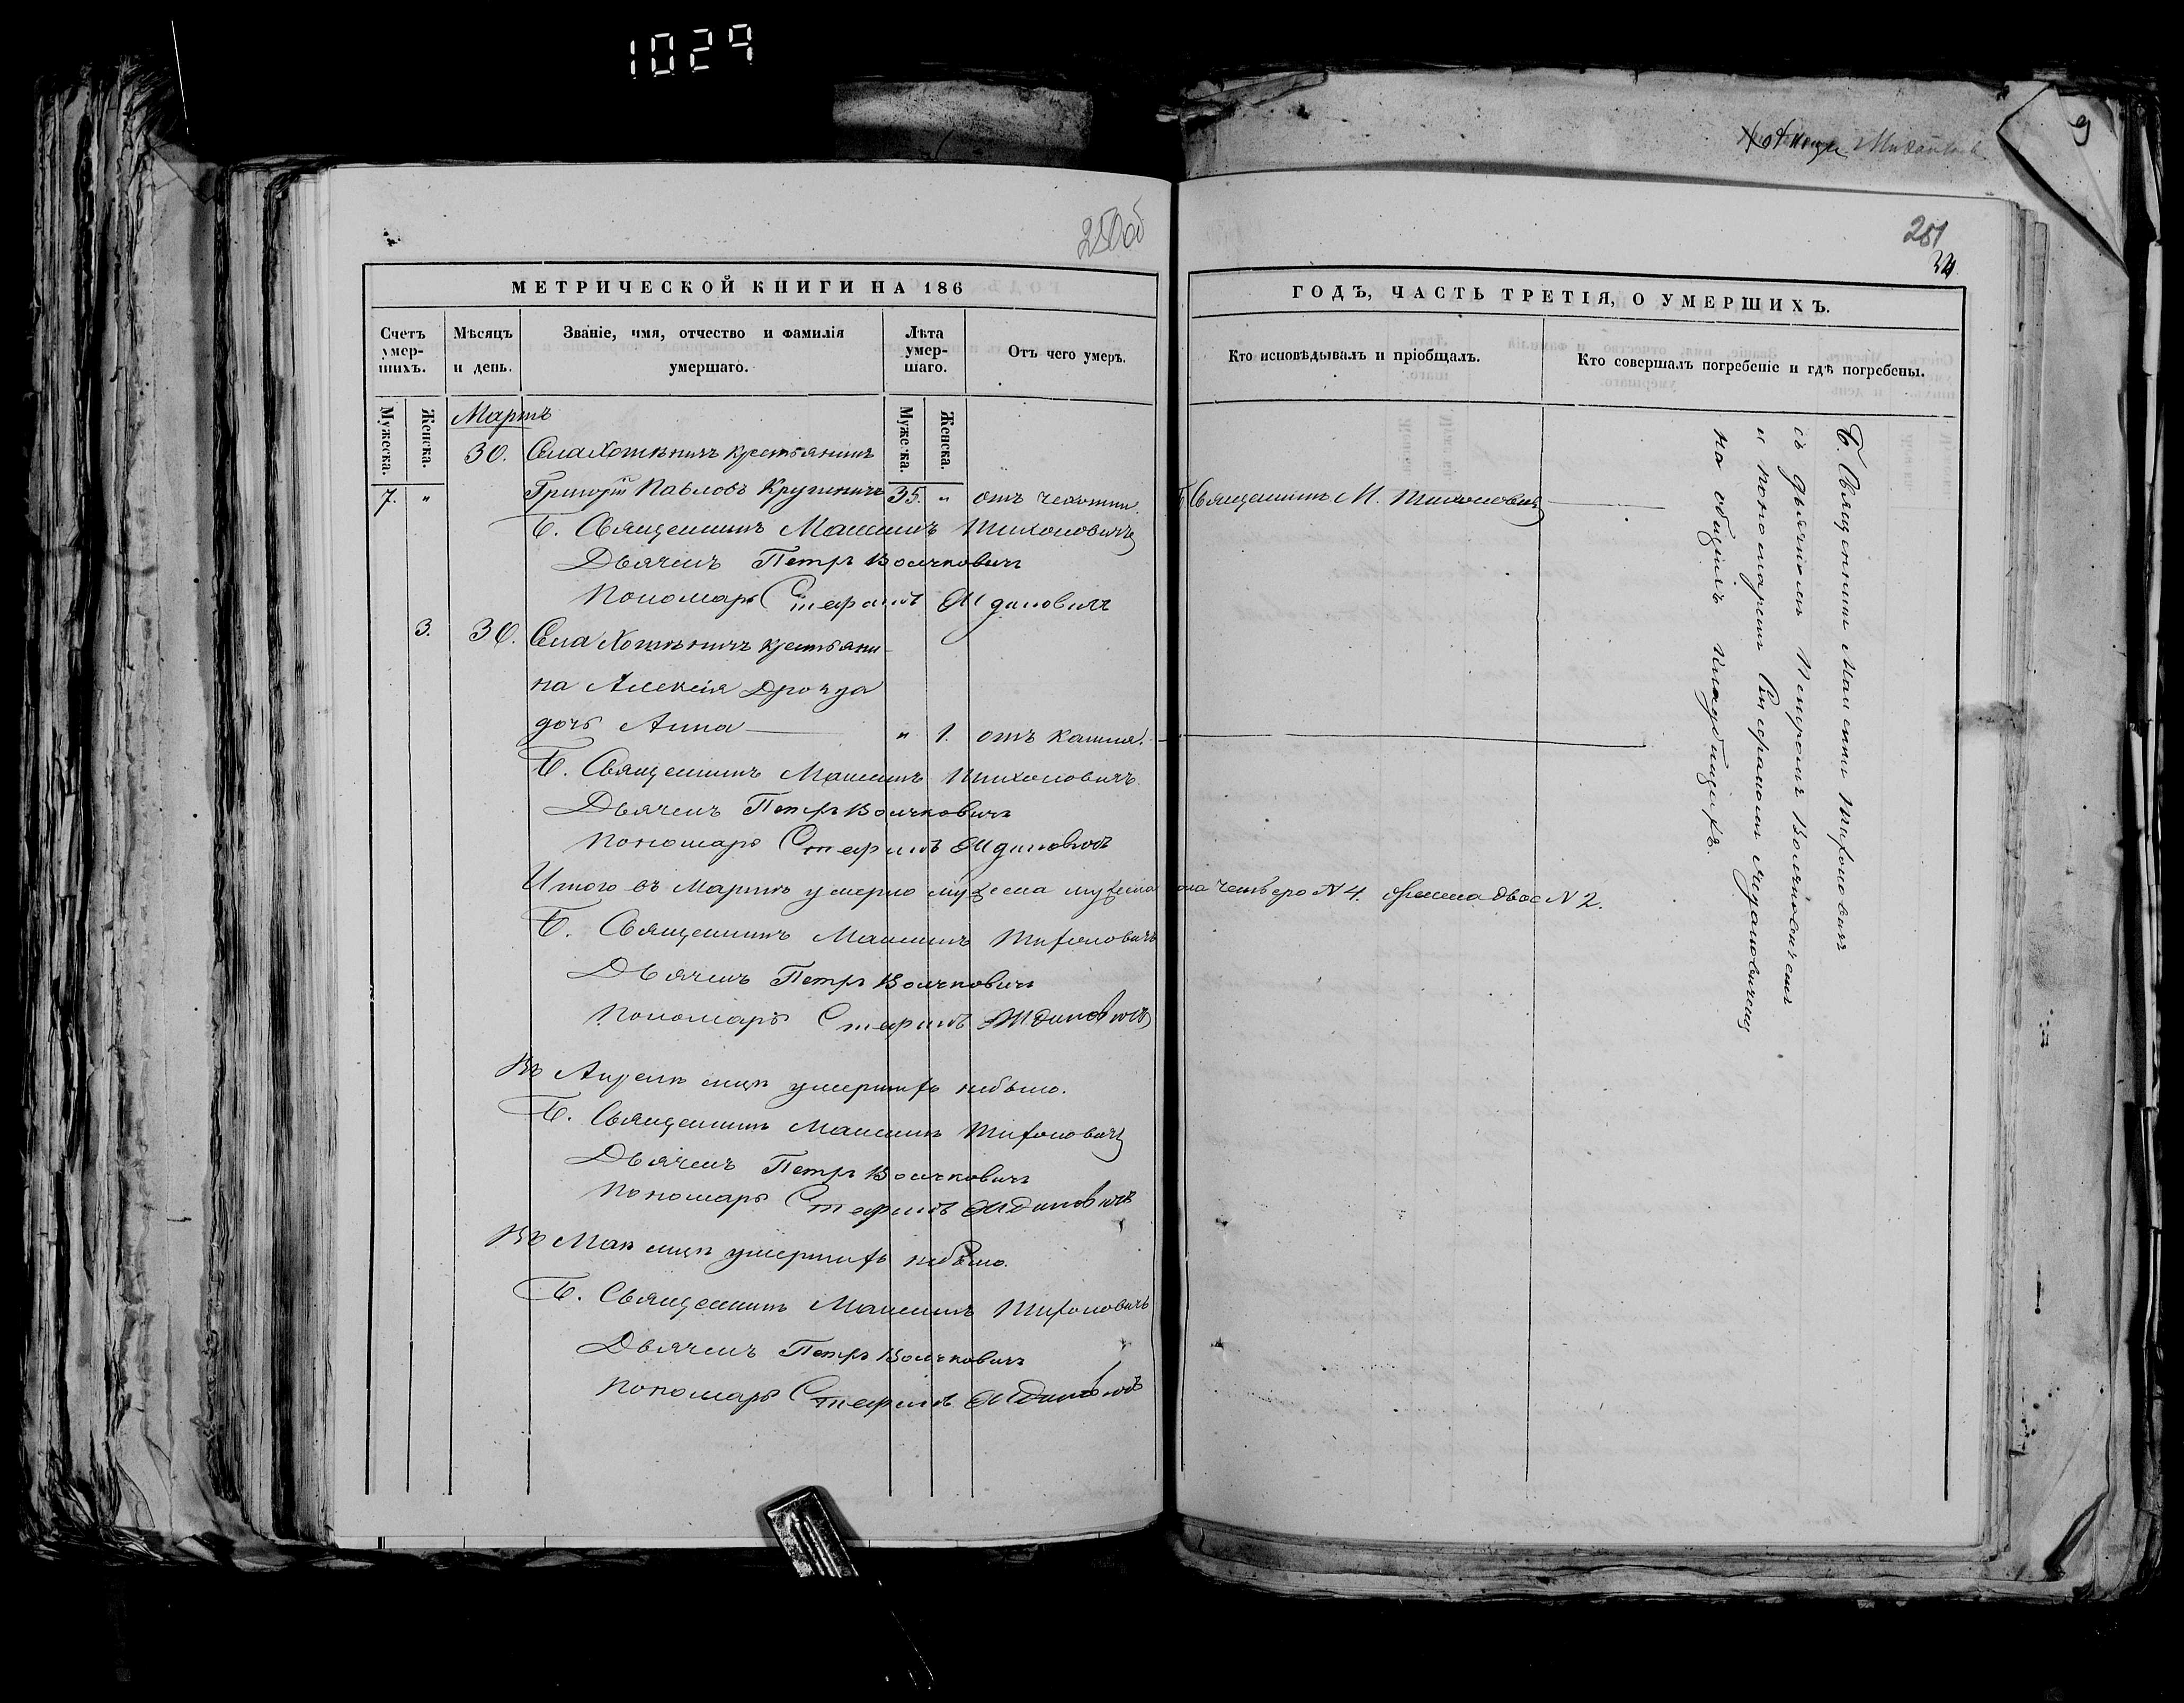 1029
250об
МЕТРИЧЕСКОЙ КНИГИ НА 186
Счетъ умер-шихъ.
Мѣсяцъ и день.
Званіе, имя, отчество и фамилія умершаго.
Лѣта умер-шаго.
Отъ чего умеръ.
Мужеска.
Женска.
Мужеска.
Женска.
Мартъ
30. Села Хотѣничъ крестьянинъ
7. " Григорій Павловъ Кругиничъ 35. " отъ чехотки.
Б. Священникъ Максимъ Тихоновичъ
Дьячекъ Петръ Волчковичъ
Пономарь Стефанъ
3. 30. Села Хотѣничъ крестьяни-
на Алексія Дрозда
дочь Анна " 1. отъ кашля.
Б. Священникъ Максимъ Тихоновичъ
Дьячекъ Петръ Волчковичъ
Пономарь Стефанъ
Итого въ Мартѣ умерло мужеска четверо N 4. женска двое N 2.
Б. Священникъ Максимъ Тихоновичъ
Дьячекъ Петръ Волчковичъ
Пономарь Стефанъ
Въ Апрелѣ мцѣ умершихъ небыло.
Б. Священникъ Максимъ Тихоновичъ
Дьячекъ Петръ Волчковичъ
Пономарь Стефанъ
Въ Маѣ мцѣ умершихъ небыло.
Б. Священникъ Максимъ Тихоновичъ
Дьячекъ Петръ Волчковичъ
Пономарь Стефанъ
9
251
ГОДЪ, ЧАСТЬ ТРЕТІЯ, О УМЕРШИХЪ.
Кто исповѣдывалъ и пріобщалъ.
Кто совершалъ погребеніе и гдѣ погребены.
Б. Священникъ М. Тихоновичъ
Б. Священникъ Максимъ Тихоновичъ
съ дьячкомъ Петромъ Волчковичемъ
и пономаремъ Стефаномъ
на общемъ кладбищахъ.